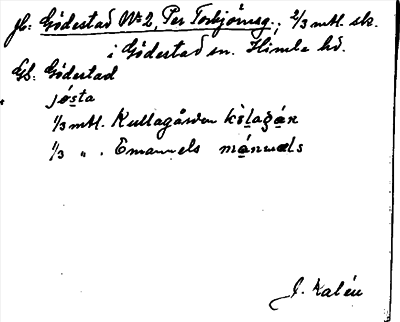 Jb: Gödestad No 2, Per Torbjörnsg., 2/3 mtl. sk.
i Gödestad sn. Himle hd.
Gb: Gödestad
jö́sta
1/3 mtl. Kullagården kö̀lagán
1/3 " . Emanuels mánuəls
J. Kalén